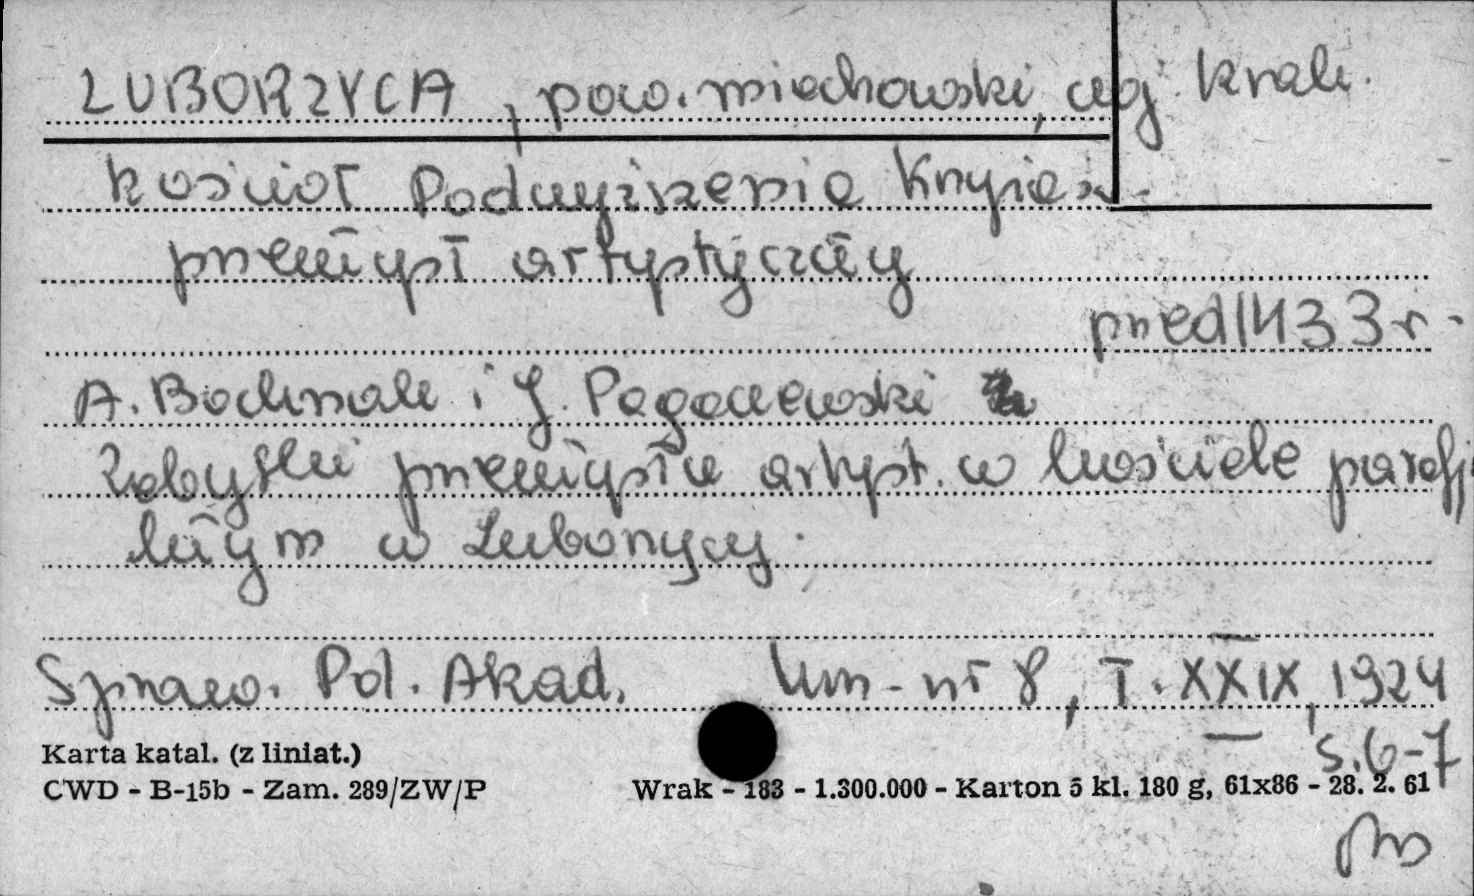 LUBORZYCA, pow. miechowski, woj. krak.
kościół Podwyższenia Krzyża
przemysł artystyczny
przed 1433 r.
A. Bochnak i J. Pagaczewski
Zabytki przemysłu artyst. w kościele parafj
lnym w Luborzycy.
Spraw. Pol. Akad. Um. nr 8, T. XXIX, 1924
s. 6-7
Karta katal. (z liniat.)
CWD - B-15b - Zam. 289/ZW/P
Wrak - 183 - 1.300.000 - Karton 5 kl. 180 g, 61x86 - 28. 2. 61